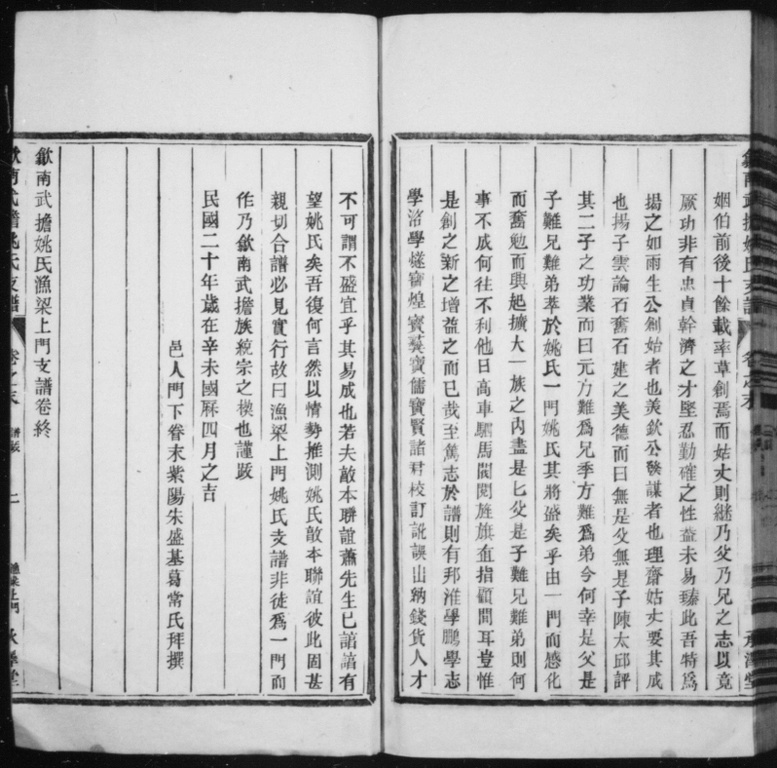 歙南武擔姚氏支譜
卷之末
承澤堂
姻伯前後十餘載率草創焉而姑丈則繼乃父乃兄之志以竟
厥功非有忠貞幹濟之才堅忍勤確之性蓋未易臻此吾特為
揚之如雨生公創始者也羡欽公發謀者也理齋姑丈要其成
也揚子雲論石奮石建之美德而曰無是父無是子陳太邱評
其二子之功業而曰元方難為兄季方難為弟今何幸是父是
子難兄難弟萃於姚氏一門姚氏其將盛矣乎由一門而感化
而奮勉而興起擴大一族之內盡是七父是子難兄難弟則何
事不成何往不利他日高車駟馬閥閱旌旗直指顧間耳豈惟
是創之新之增益之而已哉至篤志於譜則有邦淮學鵬學志
學洛學燧寶煌寶蓂寶儒寶賢諸君校訂訛誤出納錢貨人才
不可謂不盛宜乎其易成也若夫敵本聯誼蕭先生已諳諳有
望姚氏矣吾復何言然以情勢推測姚氏敵本聯誼彼此固甚
親切合譜必見實行故曰漁梁上門姚氏支譜非徒為一門而
作乃歙南武擔族統宗之楔也謹跋
民國二十年歲在辛未國厤四月之吉
邑人門下眷末紫陽朱盛基葛常氏拜撰
歙南武擔姚氏漁梁上門支譜卷終
歙南武擔姚氏支譜
卷之末
譜跋
二
漁梁上門
承澤堂